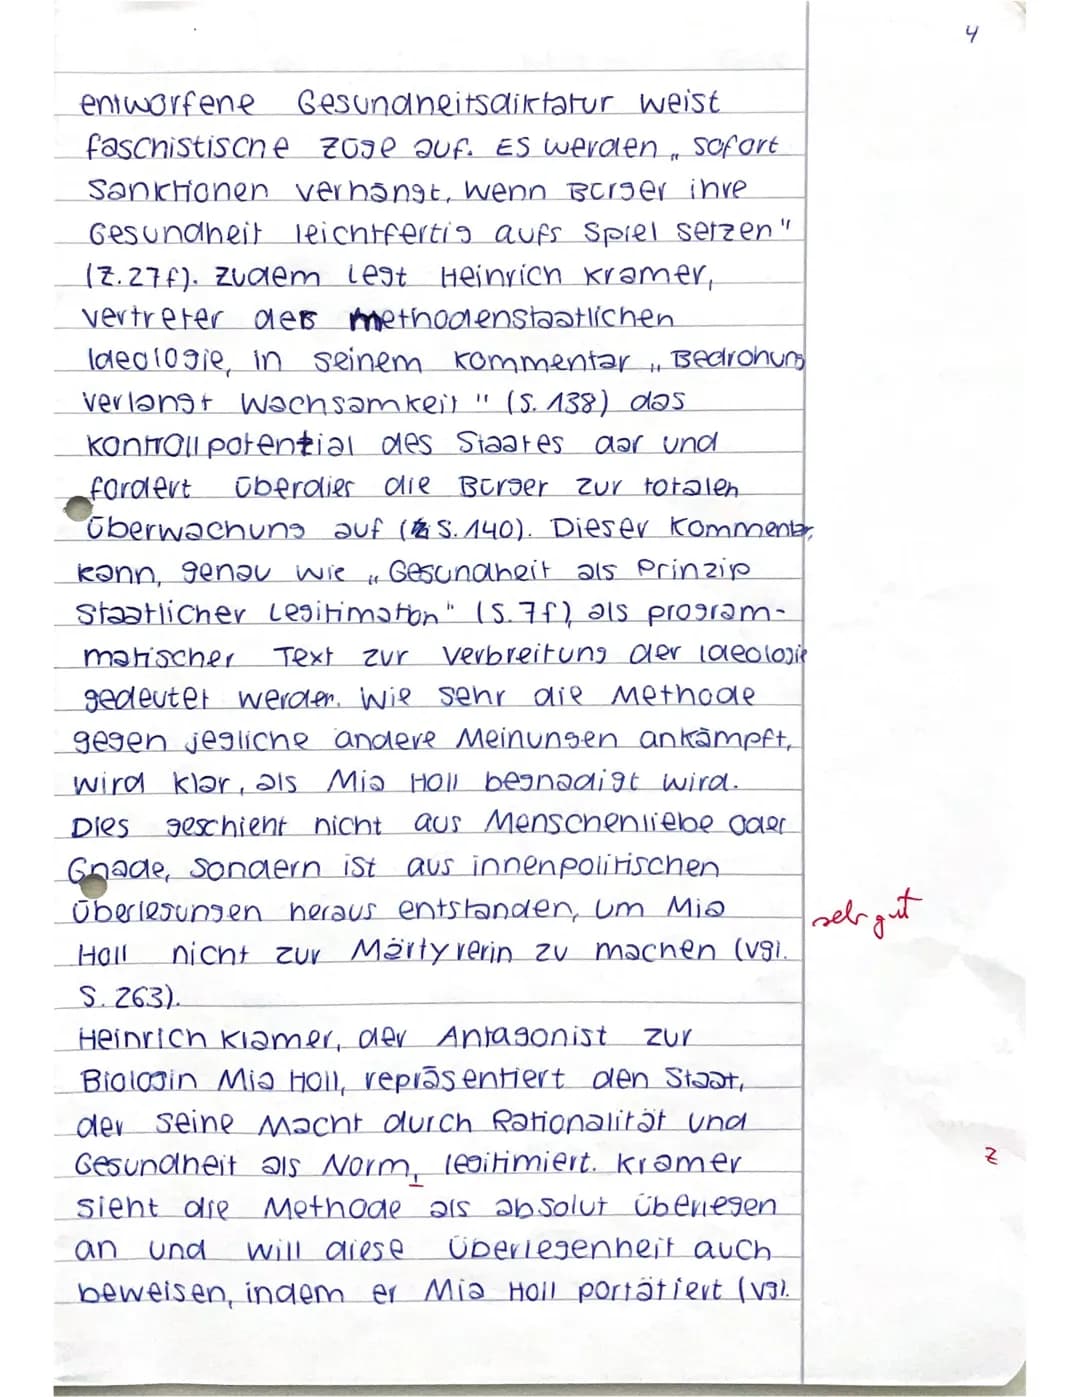 4
entworfene Gesundheitsdiktatur weist
faschistische Züge auf. Es werden „sofort
Sanktionen verhängt, wenn Bürger ihre
Gesundheit leichtfertig aufs Spiel setzen"
(Z. 27f). Zudem legt Heinrich Kramer,
Vertreter der methodenstaatlichen
Ideologie, in seinem Kommentar „Bedrohung
verlangt Wachsamkeit" (S. 138) das
Kontrollpotential des Staates dar und
fordert überdies die Bürger zur totalen
Überwachung auf (S. 140). Dieser Kommentar,
kann, genau wie „Gesundheit als Prinzip
staatlicher Legitimation" (S. 7f), als program-
matischer Text zur Verbreitung der Ideologie
gedeutet werden. Wie sehr die Methode
gegen jegliche andere Meinungen ankämpft,
wird klar, als Mia Holl begnadigt wird.
Dies geschieht nicht aus Menschenliebe oder
Gnade, sondern ist aus innenpolitischen
Überlegungen heraus entstanden, um Mia
sehr gut
Holl nicht zur Märtyrerin zu machen (vgl.
S. 263).
Heinrich Kramer, der Antagonist zur
Biologin Mia Holl, repräsentiert den Staat,
der seine Macht durch Rationalität und
Gesundheit als Norm, legitimiert. Kramer
Z
sieht die Methode als absolut überlegen
an und will diese Überlegenheit auch
beweisen, indem er Mia Holl portätiert (vgl.